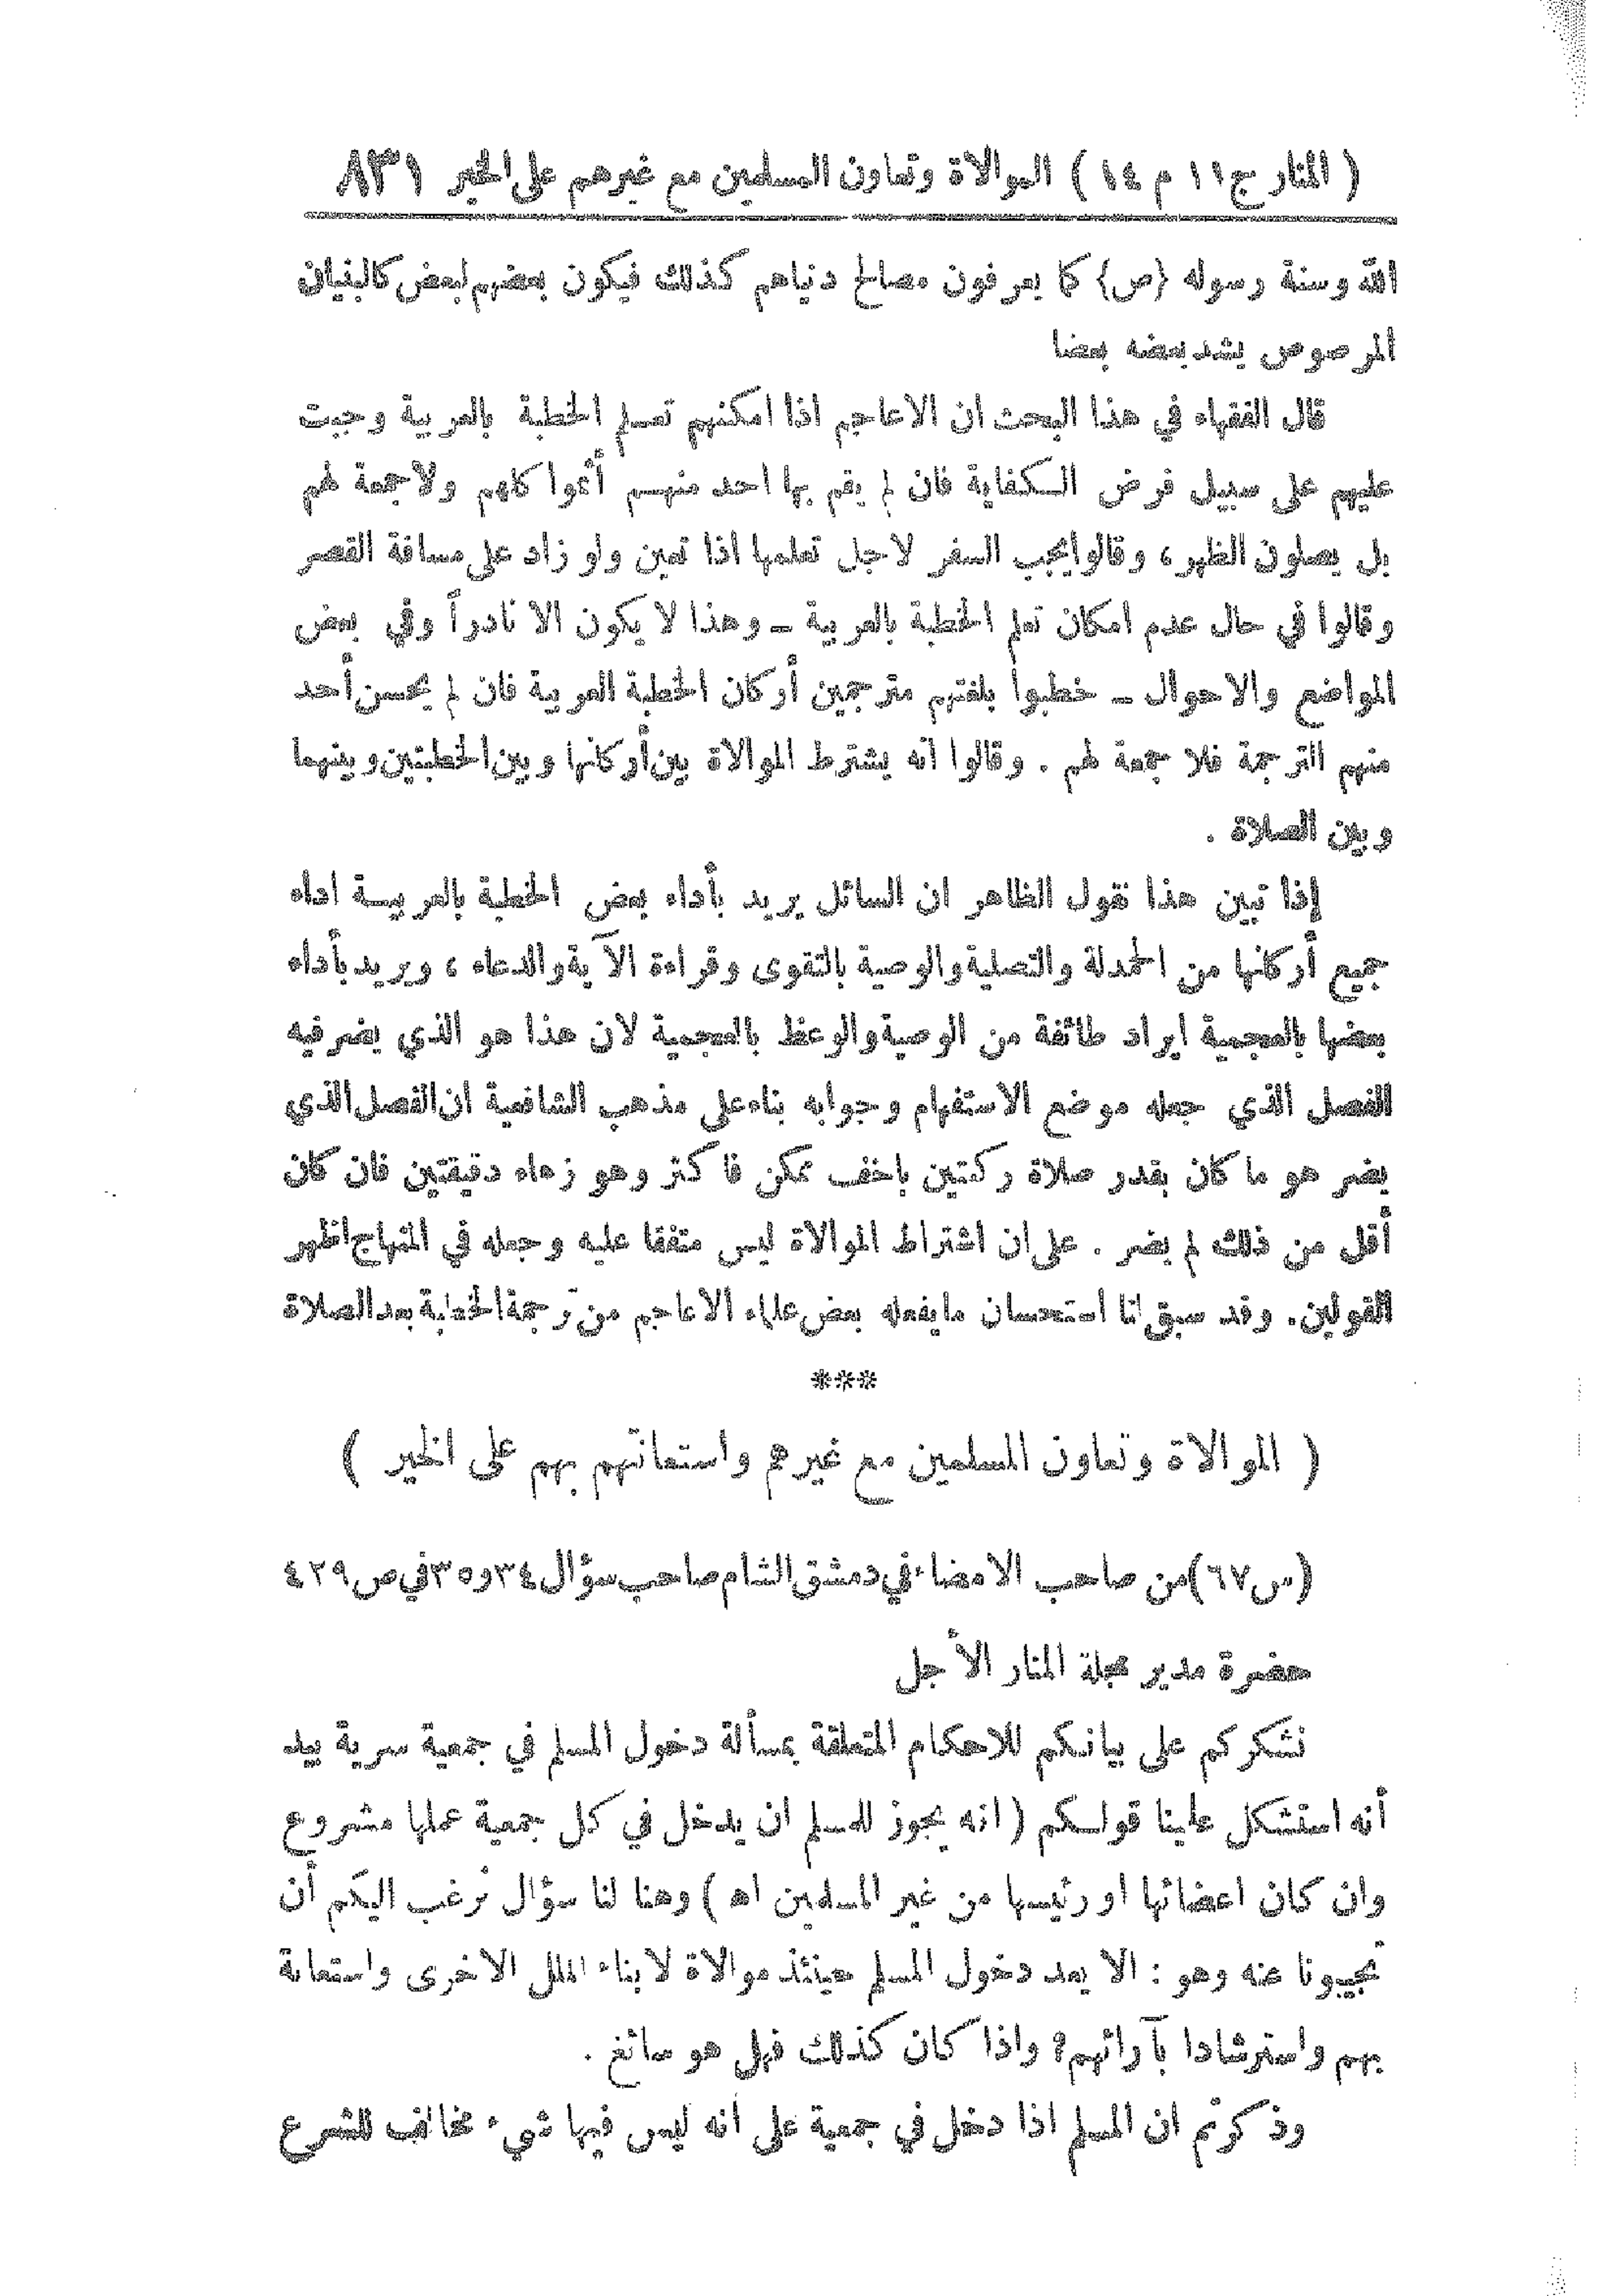 ( المنار ج ١١ م ١٤ ) الموالاة وتعاون المسلمين مع غيرهم على الخير ٨٣١
الله وسنة رسوله {ص} كما يعرفون مصالح دنياهم كذلك فيكون بعضهم لبعض كالبنيان
المرصوص يشد بعضه بعضا
قال الفقهاء في هذا البحث ان الاعاجم اذا امكنهم تعلم الخطبة بالعربية وجبت
عليهم على سبيل فرض الكفاية فان لم يقم بها احد منهم أثموا كلهم ولا جمعة لهم
بل يصلون الظهر، وقالوا يجب السفر لاجل تعلمها اذا تعين ولو زاد على مسافة القصر
وقالوا في حال عدم امكان تعلم الخطبة بالعربية ــ وهذا لا يكون الا نادراً وفي بعض
المواضع والاحوال ــ خطبوا بلغتهم مترجمين أركان الخطبة العربية فان لم يحسن أحد
منهم الترجمة فلا جمعة لهم . وقالوا انه يشترط الموالاة بين أركانها وبين الخطبتين وبينهما
وبين الصلاة .
إذا تبين هذا نقول الظاهر ان السائل يريد بأداء بعض الخطبة بالعربية اداء
جميع أركانها من الحمدلة والتصلية والوصية بالتقوى وقراءة الآية والدعاء ، ويريد بأداء
بعضها بالعجمية ايراد طائفة من الوصية والوعظ بالعجمية لان هذا هو الذي يضر فيه
الفصل الذي جعله موضع الاستفهام وجوابه بناء على مذهب الشافعية ان الفصل الذي
يضر هو ما كان بقدر صلاة ركعتين باخف ممكن فاكثر وهو زهاء دقيقتين فان كان
أقل من ذلك لم يضر . على ان اشتراط الموالاة ليس متفقا عليه وجعله في المنهاج اظهر
القولين. وقد سبق لنا استحسان ما يفعله بعض علماء الاعاجم من ترجمة الخطبة بعد الصلاة
***
( الموالاة وتعاون المسلمين مع غيرهم واستعانتهم بهم على الخير )
(س ٦٧) من صاحب الامضاء في دمشق الشام صاحب سؤال ٣٤ و ٣٥ في ص ٤٢٩
حضرة مدير مجلة المنار الأجل
نشكركم على بيانكم للاحكام المتعلقة بمسألة دخول المسلم في جمعية سرية بيد
أنه استشكل علينا قولكم ( انه يجوز للمسلم ان يدخل في كل جمعية عملها مشروع
وان كان اعضائها او رئيسها من غير المسلمين اه ) وهنا لنا سؤال نرغب اليكم أن
تجيبونا عنه وهو : الا يعد دخول المسلم حينئذ موالاة لابناء الملل الاخرى واستعانة
بهم واسترشادا بآرائهم؟ واذا كان كذلك فهل هو سائغ .
وذكرتم ان المسلم اذا دخل في جمعية على انه ليس فيها شيء مخالف للشرع